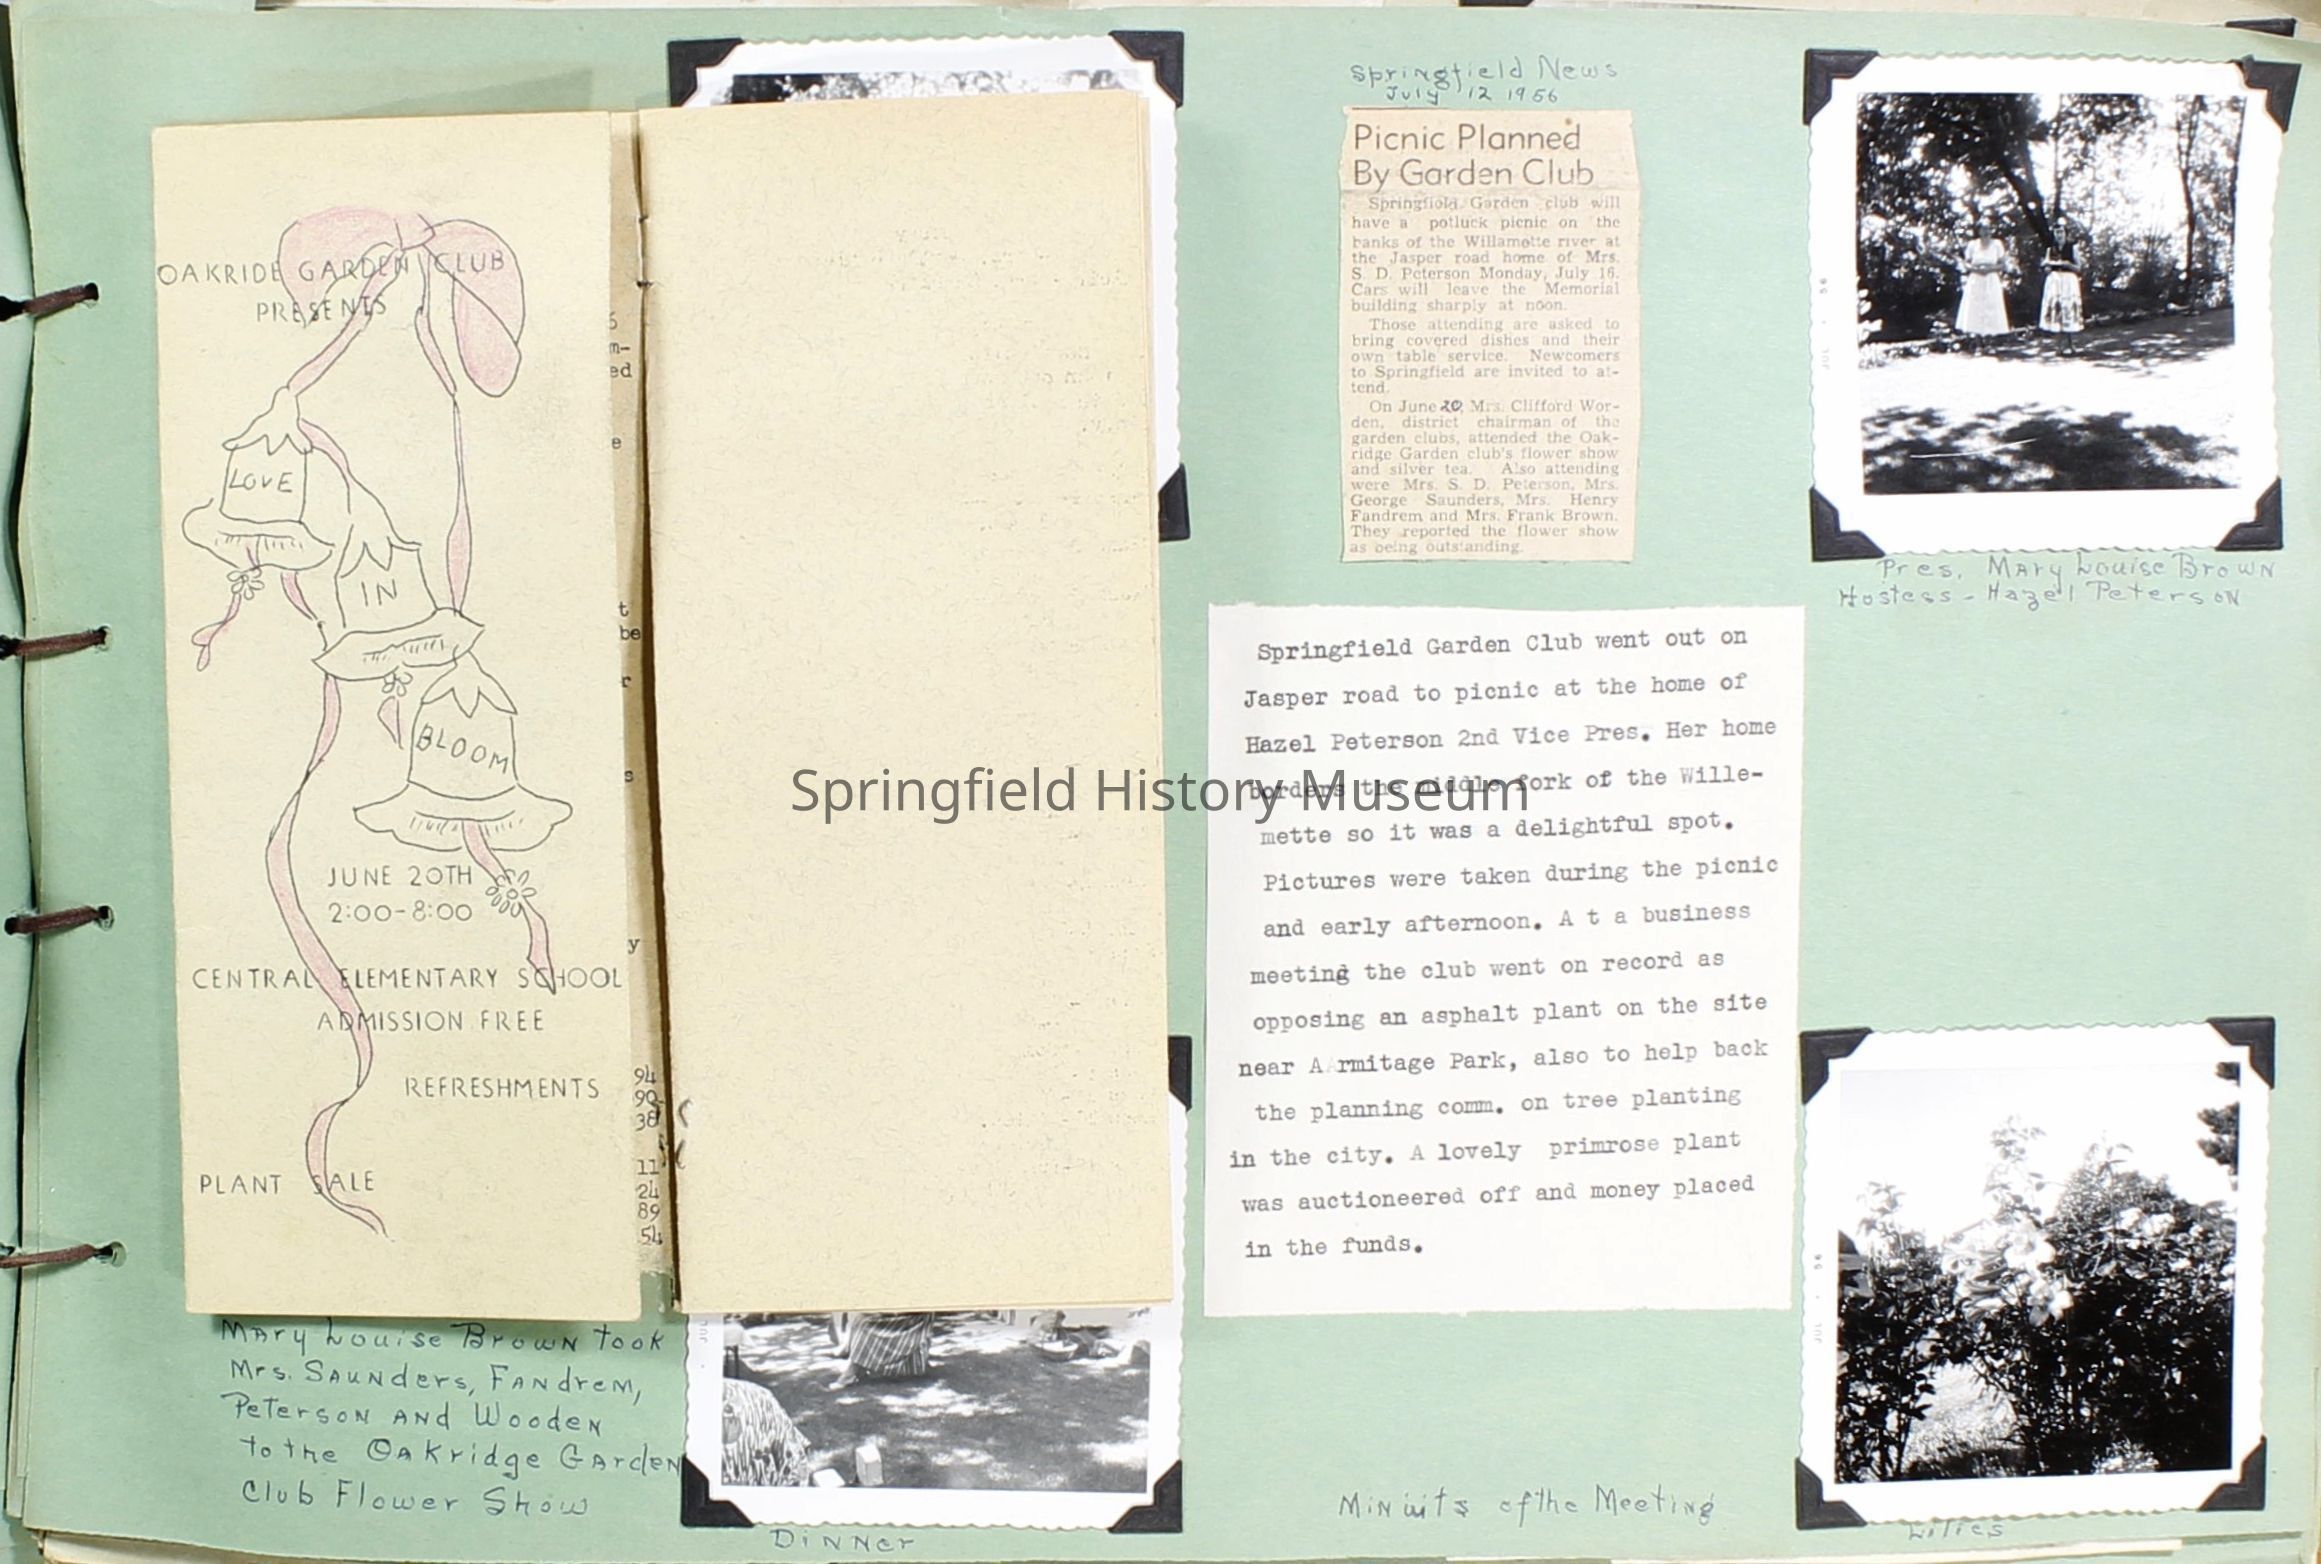 OAKRIDE GARDEN CLUB
PRESENTS
LOVE
IN
BLOOM
JUNE 20TH
2:00-8:00
CENTRAL ELEMENTARY SCHOOL
ADMISSION FREE
REFRESHMENTS
PLANT SALE
m-
ed
e
t
be
r
s
y
94
90
38
11
24
89
54
Mary Louise Brown took
Mrs. Saunders, Fandrem,
Peterson and Wooden
to the Oakridge Garden
Club Flower Show
Dinner
Springfield News
July 12 1956
Picnic Planned
By Garden Club
Springfield Garden club will
have a potluck picnic on the
banks of the Willamette river at
the Jasper road home of Mrs.
S. D. Peterson Monday, July 16.
Cars will leave the Memorial
building sharply at noon.
Those attending are asked to
bring covered dishes and their
own table service. Newcomers
to Springfield are invited to at-
tend.
On June 20, Mrs. Clifford Wor-
den, district chairman of the
garden clubs, attended the Oak-
ridge Garden club's flower show
and silver tea. Also attending
were Mrs. S. D. Peterson, Mrs.
George Saunders, Mrs. Henry
Fandrem and Mrs. Frank Brown.
They reported the flower show
as being outstanding.
Springfield Garden Club went out on
Jasper road to picnic at the home of
Hazel Peterson 2nd Vice Pres. Her home
borders the middle fork of the Wille-
mette so it was a delightful spot.
Pictures were taken during the picnic
and early afternoon. A t a business
meeting the club went on record as
opposing an asphalt plant on the site
near A rmitage Park, also to help back
the planning comm. on tree planting
in the city. A lovely primrose plant
was auctioneered off and money placed
in the funds.
Minuits of the Meeting
JUL • 56
Pres. Mary Louise Brown
Hostess - Hazel Peterson
JUL • 56
Lilies
JUL
Springfield History Museum